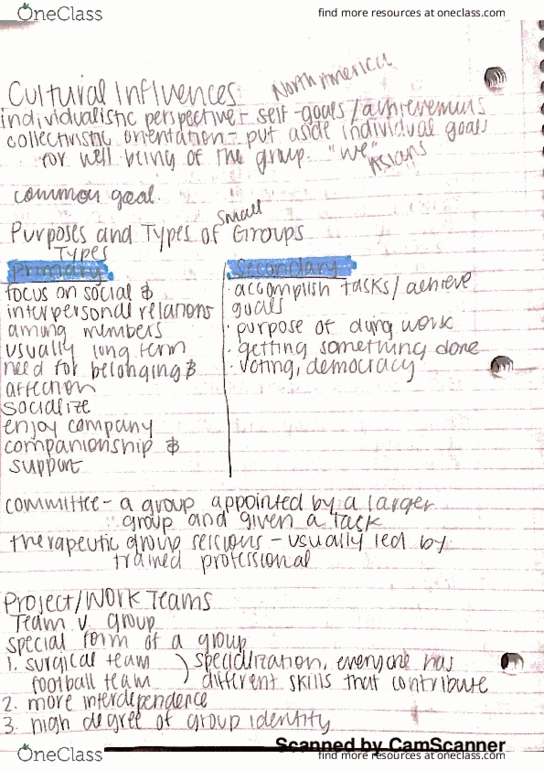 OneClass
find more resources at oneclass.com
North America
Cultural Influences
individualistic perspective - self-goals/achievements
collectivistic orientation - put aside individual goals
for well being of the group. "we"
Asians
common goal.
Small
Purposes and Types of Groups
Types
Primary
focus on social &
interpersonal relations
among members
usually long term
need for belonging &
affection
socialize
enjoy company
companionship &
support
Secondary
· accomplish tasks/achieve
goals
· purpose of doing work
· getting something done
· voting, democracy
committee - a group appointed by a larger
group and given a task
therapeutic group sessions - usually led by
trained professional
Project/Work Teams
Team v. group
special form of a group
1. surgical team ) specialization, everyone has
football team ) different skills that contribute
2. more interdependence
3. high degree of group identity
Scanned by CamScanner
OneClass
find more resources at oneclass.com